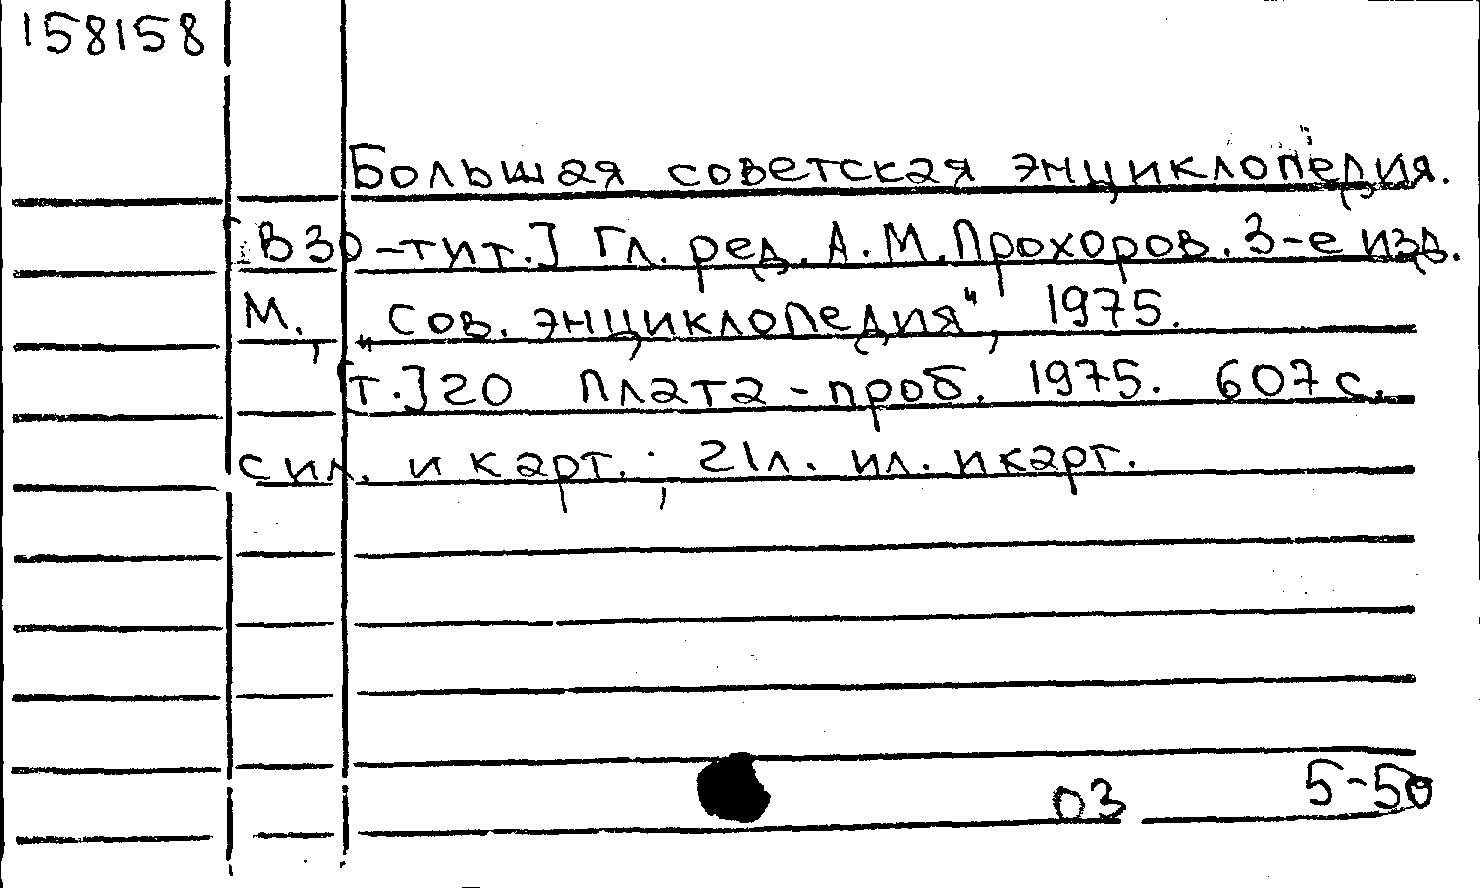 158158
Большая советская энциклопедия.
[В 30-ти т.] Гл. ред. А.М.Прохоров. 3-е изд.
М., „Сов. энциклопедия", 1975.
[т.] 20 Плата - проб. 1975. 607 с.
с ил. и карт.; 21л. ил. и карт.
03 5-50